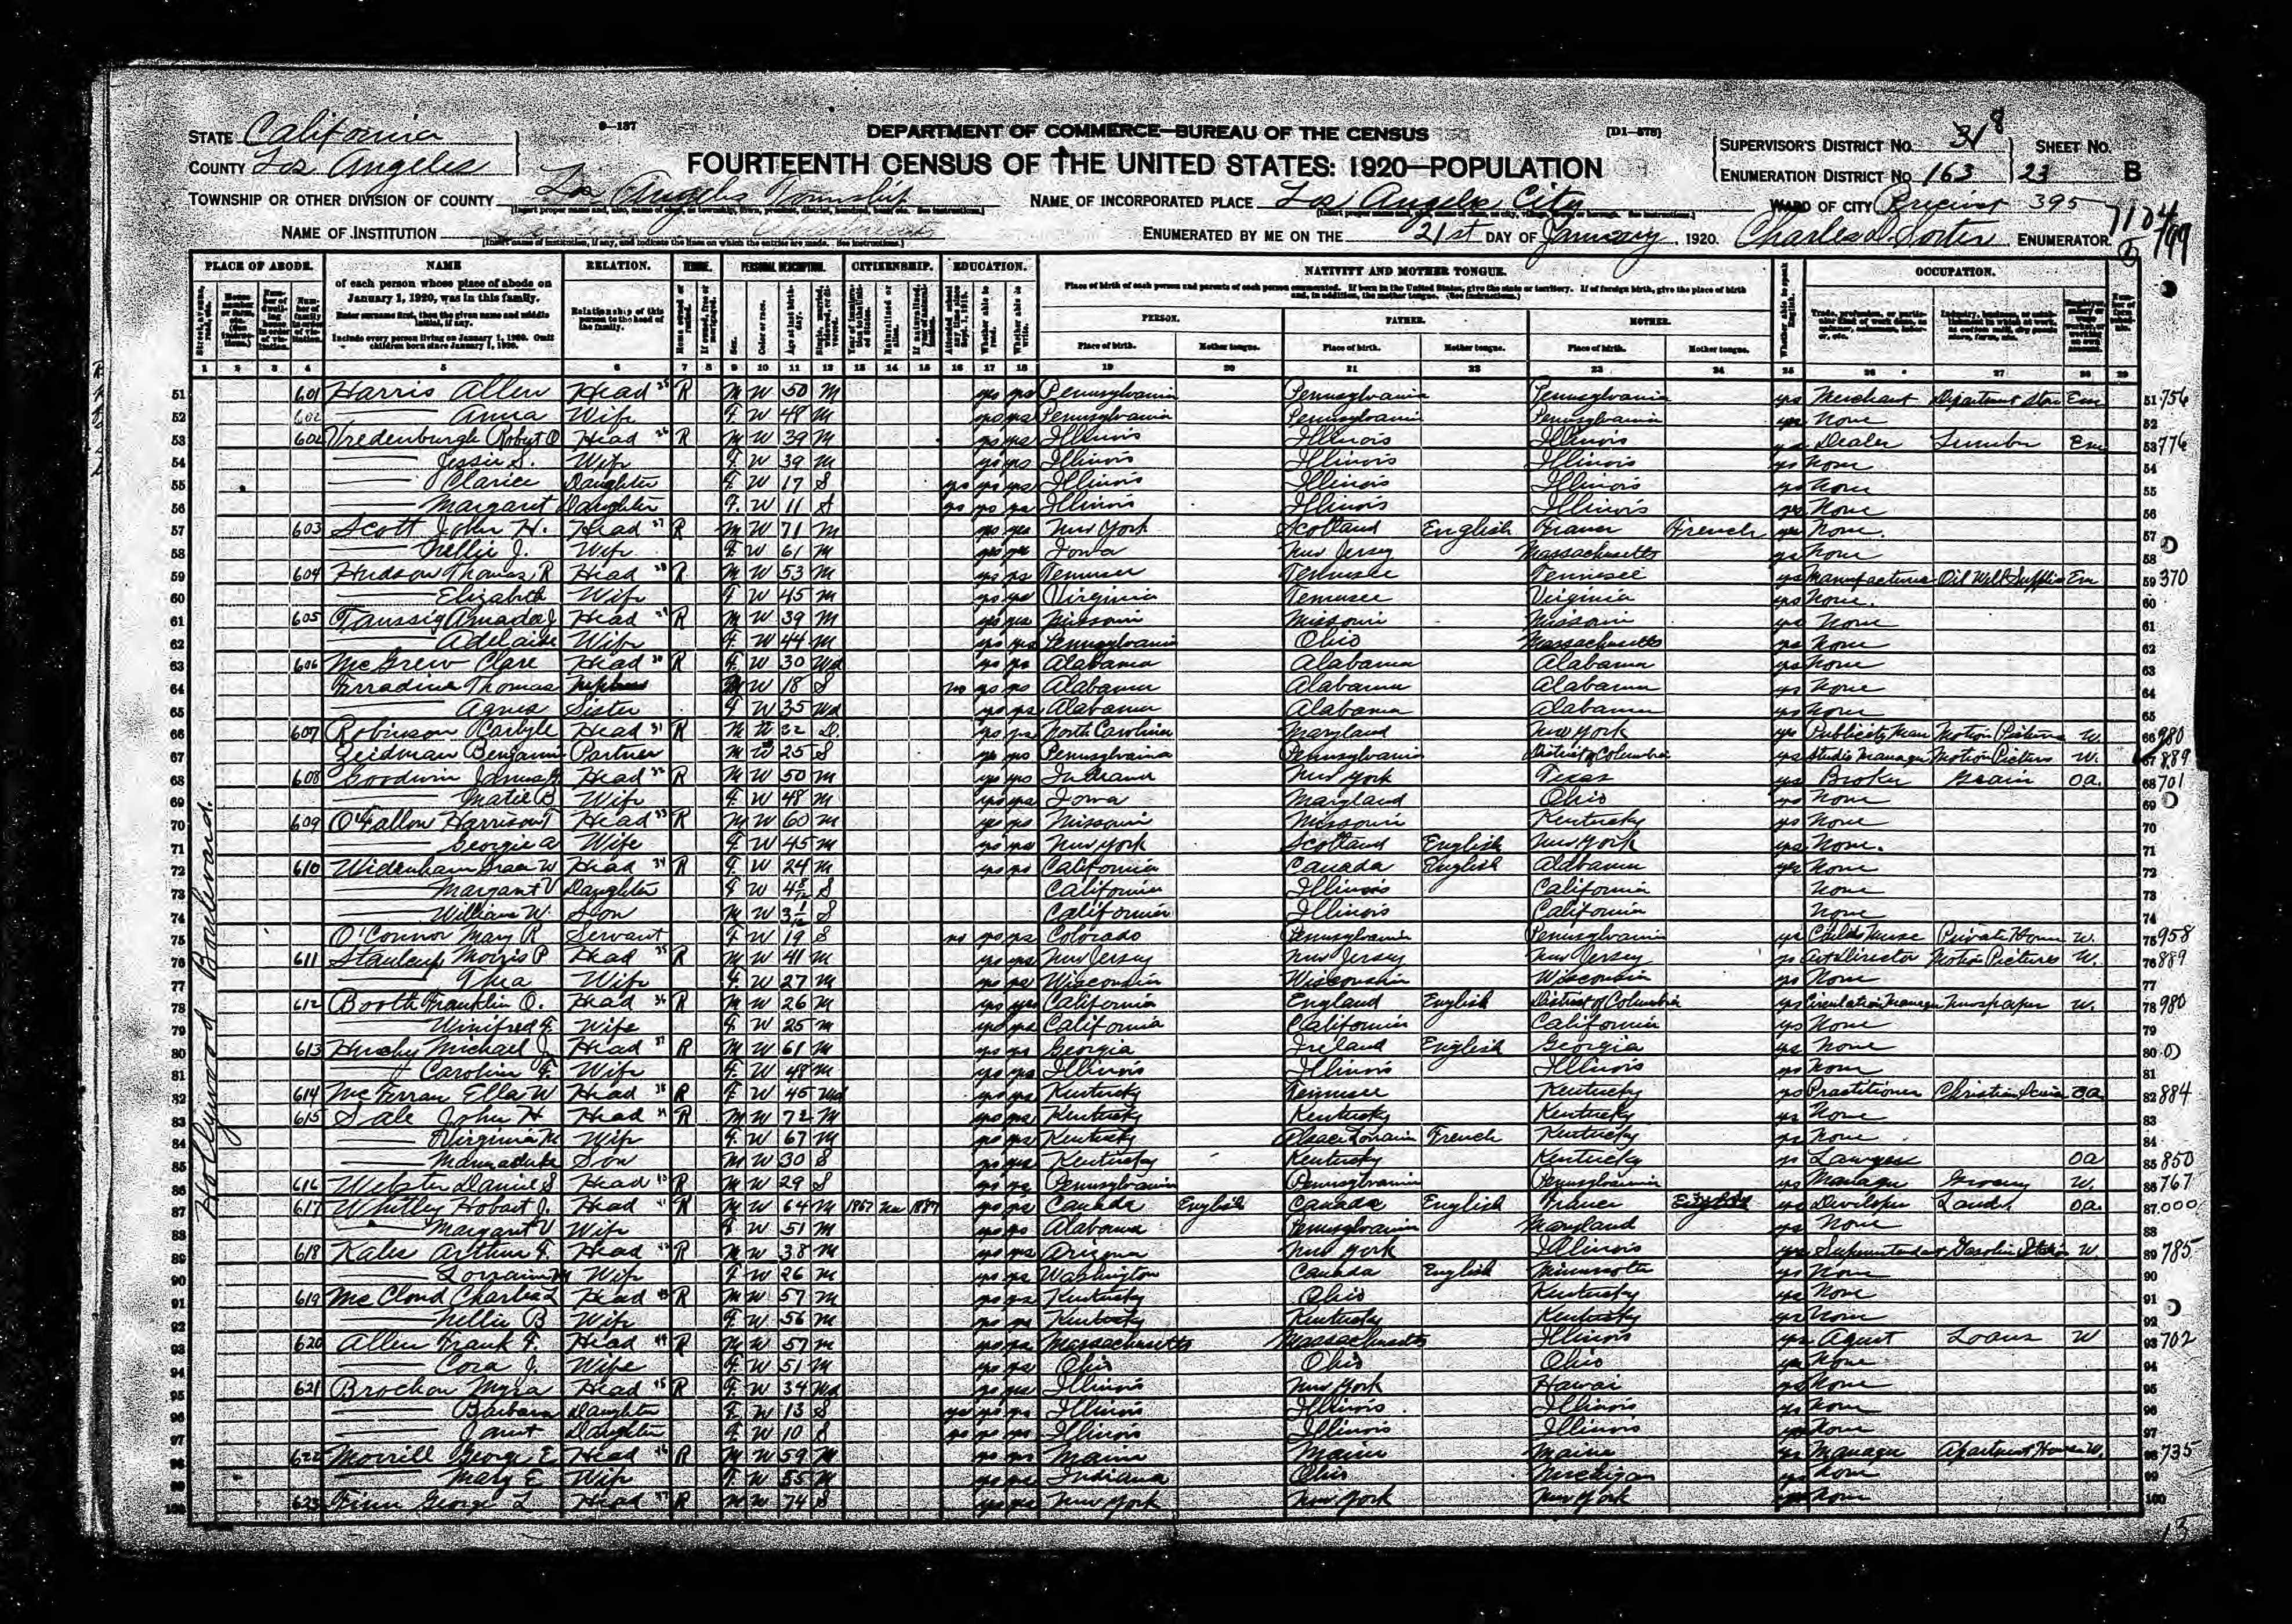 STATE California
COUNTY Los Angeles
9-137
DEPARTMENT OF COMMERCE—BUREAU OF THE CENSUS
[D1-578]
FOURTEENTH CENSUS OF THE UNITED STATES: 1920—POPULATION
SUPERVISOR'S DISTRICT No. 8
ENUMERATION DISTRICT No. 163
SHEET No. 23 B
TOWNSHIP OR OTHER DIVISION OF COUNTY Los Angeles Township
NAME OF INCORPORATED PLACE Los Angeles City
WARD OF CITY Precinct 395
NAME OF INSTITUTION
ENUMERATED BY ME ON THE 21st DAY OF January, 1920. Charles D. ENUMERATOR.
PLACE OF ABODE. NAME RELATION. PERSONAL DESCRIPTION. CITIZENSHIP. EDUCATION. NATIVITY AND MOTHER TONGUE. OCCUPATION.
of each person whose place of abode on January 1, 1920, was in this family.
Enter surname first, then the given name and middle initial, if any.
Include every person living on January 1, 1920. Omit children born since January 1, 1920.
Relationship of this person to the head of the family.
PERSON. FATHER. MOTHER.
Place of birth. Mother tongue. Place of birth. Mother tongue. Place of birth. Mother tongue.
1 2 3 4 5 6 7 8 9 10 11 12 13 14 15 16 17 18 19 20 21 22 23 24 25 26 27 28 29
Hollywood Boulevard.
51 601 Harris Allen Head R M W 50 M yes yes Pennsylvania Pennsylvania Pennsylvania yes Merchant Department Store Em 51 756
52 602 Anna Wife F W 48 M yes yes Pennsylvania Pennsylvania Pennsylvania yes None 52
53 602 Vredenburgh Robert O Head R M W 39 M yes yes Illinois Illinois Illinois yes Dealer Lumber Em 53 776
54 Jessie S. Wife F W 39 M yes yes Illinois Illinois Illinois yes None 54
55 Clarice Daughter F W 17 S yes yes yes Illinois Illinois Illinois yes None 55
56 Margaret Daughter F W 11 S yes yes yes Illinois Illinois Illinois yes None 56
57 603 Scott John H. Head R M W 71 M yes yes New York Scotland English France French yes None. 57
58 Nellie J. Wife F W 61 M yes yes Iowa New Jersey Massachusetts yes None 58
59 604 Hudson Thomas R Head R M W 53 M yes yes Tennessee Tennessee Tennessee yes Manufacturer Oil Well Supplies Em 59 370
60 Elizabeth Wife F W 45 M yes yes Virginia Tennessee Virginia yes None. 60
61 605 Taussig Amadee J Head R M W 39 M yes yes Missouri Missouri Missouri yes None 61
62 Adelaide Wife F W 44 M yes yes Pennsylvania Ohio Massachusetts yes None 62
63 606 McGrew Clare Head R F W 30 Wd yes yes Alabama Alabama Alabama yes None 63
64 Thomas Nephew M W 18 S no yes yes Alabama Alabama Alabama yes None 64
65 Agnes Sister F W 35 Wd yes yes Alabama Alabama Alabama yes None 65
66 607 Robinson Carlyle Head R M W 32 D yes yes North Carolina Maryland New York yes Publicity Man Motion Pictures W. 66 980
67 Zeidman Benjamin Partner M W 25 S yes yes Pennsylvania Pennsylvania District of Columbia yes Studio Manager Motion Pictures W. 67 889
68 608 Goodwin James Head R M W 50 M yes yes Indiana New York Texas yes Broker Grain OA. 68 701
69 Matie B Wife F W 48 M yes yes Iowa Maryland Ohio yes None 69
70 609 O'Fallon Harrison T Head R M W 60 M yes yes Missouri Missouri Kentucky yes None 70
71 Georgie A Wife F W 45 M yes yes New York Scotland English New York yes None. 71
72 610 Widenham Grace W Head R F W 24 M yes yes California Canada English Alabama yes None 72
73 Margaret V Daughter F W 4 S California Illinois California None 73
74 William W. Son M W 3 1/12 S California Illinois California None 74
75 O'Connor Mary R Servant F W 19 S no yes yes Colorado Pennsylvania Pennsylvania yes Childs Nurse Private Home W. 75 958
76 611 Morris P Head R M W 41 M yes yes New Jersey New Jersey New Jersey yes Art Director Motion Pictures W. 76 889
77 Thea Wife F W 27 M yes yes Wisconsin Wisconsin Wisconsin yes None 77
78 612 Booth Franklin O. Head R M W 26 M yes yes California England English District of Columbia yes Circulation Manager Newspaper W. 78 980
79 Winifred F. Wife F W 25 M yes yes California California California yes None 79
80 613 Michael J. Head R M W 61 M yes yes Georgia Ireland English Georgia yes None 80
81 Caroline F. Wife F W 48 M yes yes Illinois Illinois Illinois yes None 81
82 614 McFerran Ella W Head R F W 45 Wd yes yes Kentucky Tennessee Kentucky yes Practitioner Christian Science OA 82 884
83 615 Sale John H Head R M W 72 M yes yes Kentucky Kentucky Kentucky yes None 83
84 Virginia M Wife F W 67 M yes yes Kentucky Alsace Lorraine French Kentucky yes None 84
85 Marmaduke Son M W 30 S yes yes Kentucky Kentucky Kentucky yes Lawyer OA 85 850
86 616 Webster Daniel S Head R M W 29 S yes yes Pennsylvania Pennsylvania Pennsylvania yes Manager Grocery W. 86 767
87 617 Whitley Hobart J. Head R M W 64 M 1887 yes yes Canada English Canada English France English yes Developer Lands OA. 87 000
88 Margaret V Wife F W 51 M yes yes Alabama Pennsylvania Maryland yes None 88
89 618 Kales Arthur F. Head R M W 38 M yes yes Arizona New York Illinois yes Superintendent Gasoline Station W 89 785
90 Lorraine M Wife F W 26 M yes yes Washington Canada English Minnesota yes None 90
91 619 McCloud Charles L Head R M W 57 M yes yes Kentucky Ohio Kentucky yes None 91
92 Nellie B Wife F W 56 M yes yes Kentucky Kentucky Kentucky yes None 92
93 620 Allen Frank F. Head R M W 57 M yes yes Massachusetts Massachusetts Illinois yes Agent Loans W 93 702
94 Cora J. Wife F W 51 M yes yes Ohio Ohio Ohio yes None 94
95 621 Brochon Myra Head R F W 34 Wd yes yes Illinois New York Hawai yes None 95
96 Barbara Daughter F W 13 S yes yes yes Illinois Illinois Illinois yes None 96
97 Janet Daughter F W 10 S yes yes yes Illinois Illinois Illinois yes None 97
98 622 Morrill George E Head R M W 59 M yes yes Maine Maine Maine yes Manager Apartment House W. 98 735
99 Mary E Wife F W 55 M yes yes Indiana Ohio Michigan yes None 99
100 623 Finn George L Head R M W 74 S yes yes New York New York New York yes None 100